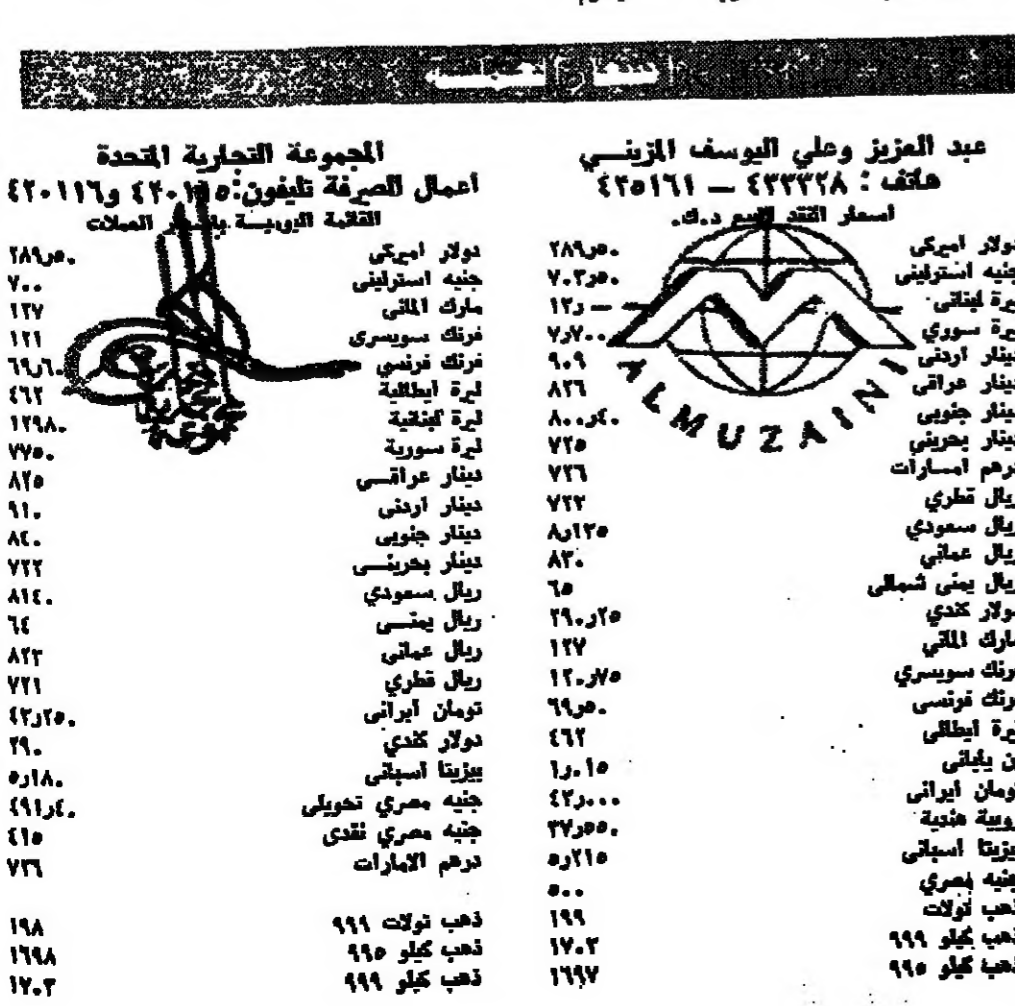 عبد العزيز وعلي اليوسف المزينــي
هاتف : ٤٣٣٣٢٨ — ٤٢٥١٦١
اسعار النقد البيع د.ك.
دولار اميركى ٢٨٩٫٥٠
جنيه استرلينى ٧٠٣٫٥٠
ليرة لبنانى ١٣٫—
ليرة سوري ٧٫٧٠٠
دينار اردنى ٩٠٩
دينار عراقى ٨٢٦
دينار جنوبى ٨٠٠٫٤٠
دينار بحرينى ٧٢٥
درهم امــارات ٧٣٦
ريال قطري ٧٢٢
ريال سعودي ٨٫١٢٥
ريال عمانى ٨٣٠
ريال يمنى شمالى ٦٥
دولار كندي ٢٩٠٫٢٥
مارك المانى ١٢٧
فرنك سويسري ١٢٠٫٧٥
فرنك فرنسى ٦٩٫٥٠
ليرة ايطالى ٤٦٢
ين يابانى ١٫٠١٥
تومان ايرانى ٤٢٫٠٠٠
روبية هندية ٣٧٫٥٥٠
بيزيتا اسبانى ٥٫٢١٥
جنيه مصري ٥٠٠
ذهب تولات ١٩٩
ذهب كيلو ٩٩٩ ١٧٠٢
ذهب كيلو ٩٩٥ ١٦٩٧
ALMUZAINI
المجموعة التجارية المتحدة
اعمال الصرفة تليفون: ٤٢٠١١٥ و٤٢٠١١٦
القائمة اليوميــة باسعار العملات
دولار اميركى ٢٨٩٫٥٠
جنيه استرلينى ٧٠٠
مارك المانى ١٢٧
فرنك سويسرى ١٢١
فرنك فرنسي ٦٩٫٦٠
ليرة ايطالية ٤٦٢
ليرة لبنانية ١٢٩٨٠
ليرة سورية ٧٧٥٠
دينار عراقــى ٨٢٥
دينار اردنى ٩١٠
دينار جنوبى ٨٤٠
دينار بحرينــى ٧٢٢
ريال سعودي ٨١٤٠
ريال يمنــى ٦٤
ريال عمانى ٨٢٣
ريال قطري ٧٢١
تومان ايرانى ٤٢٫٢٥٠
دولار كندي ٢٩٠
بيزيتا اسبانى ٥٫١٨٠
جنيه مصري تحويلى ٤٩١٫٤٠
جنيه مصري نقدى ٤١٥
درهم الامارات ٧٣٦
ذهب تولات ٩٩٩ ١٩٨
ذهب كيلو ٩٩٥ ١٦٩٨
ذهب كيلو ٩٩٩ ١٧٠٣